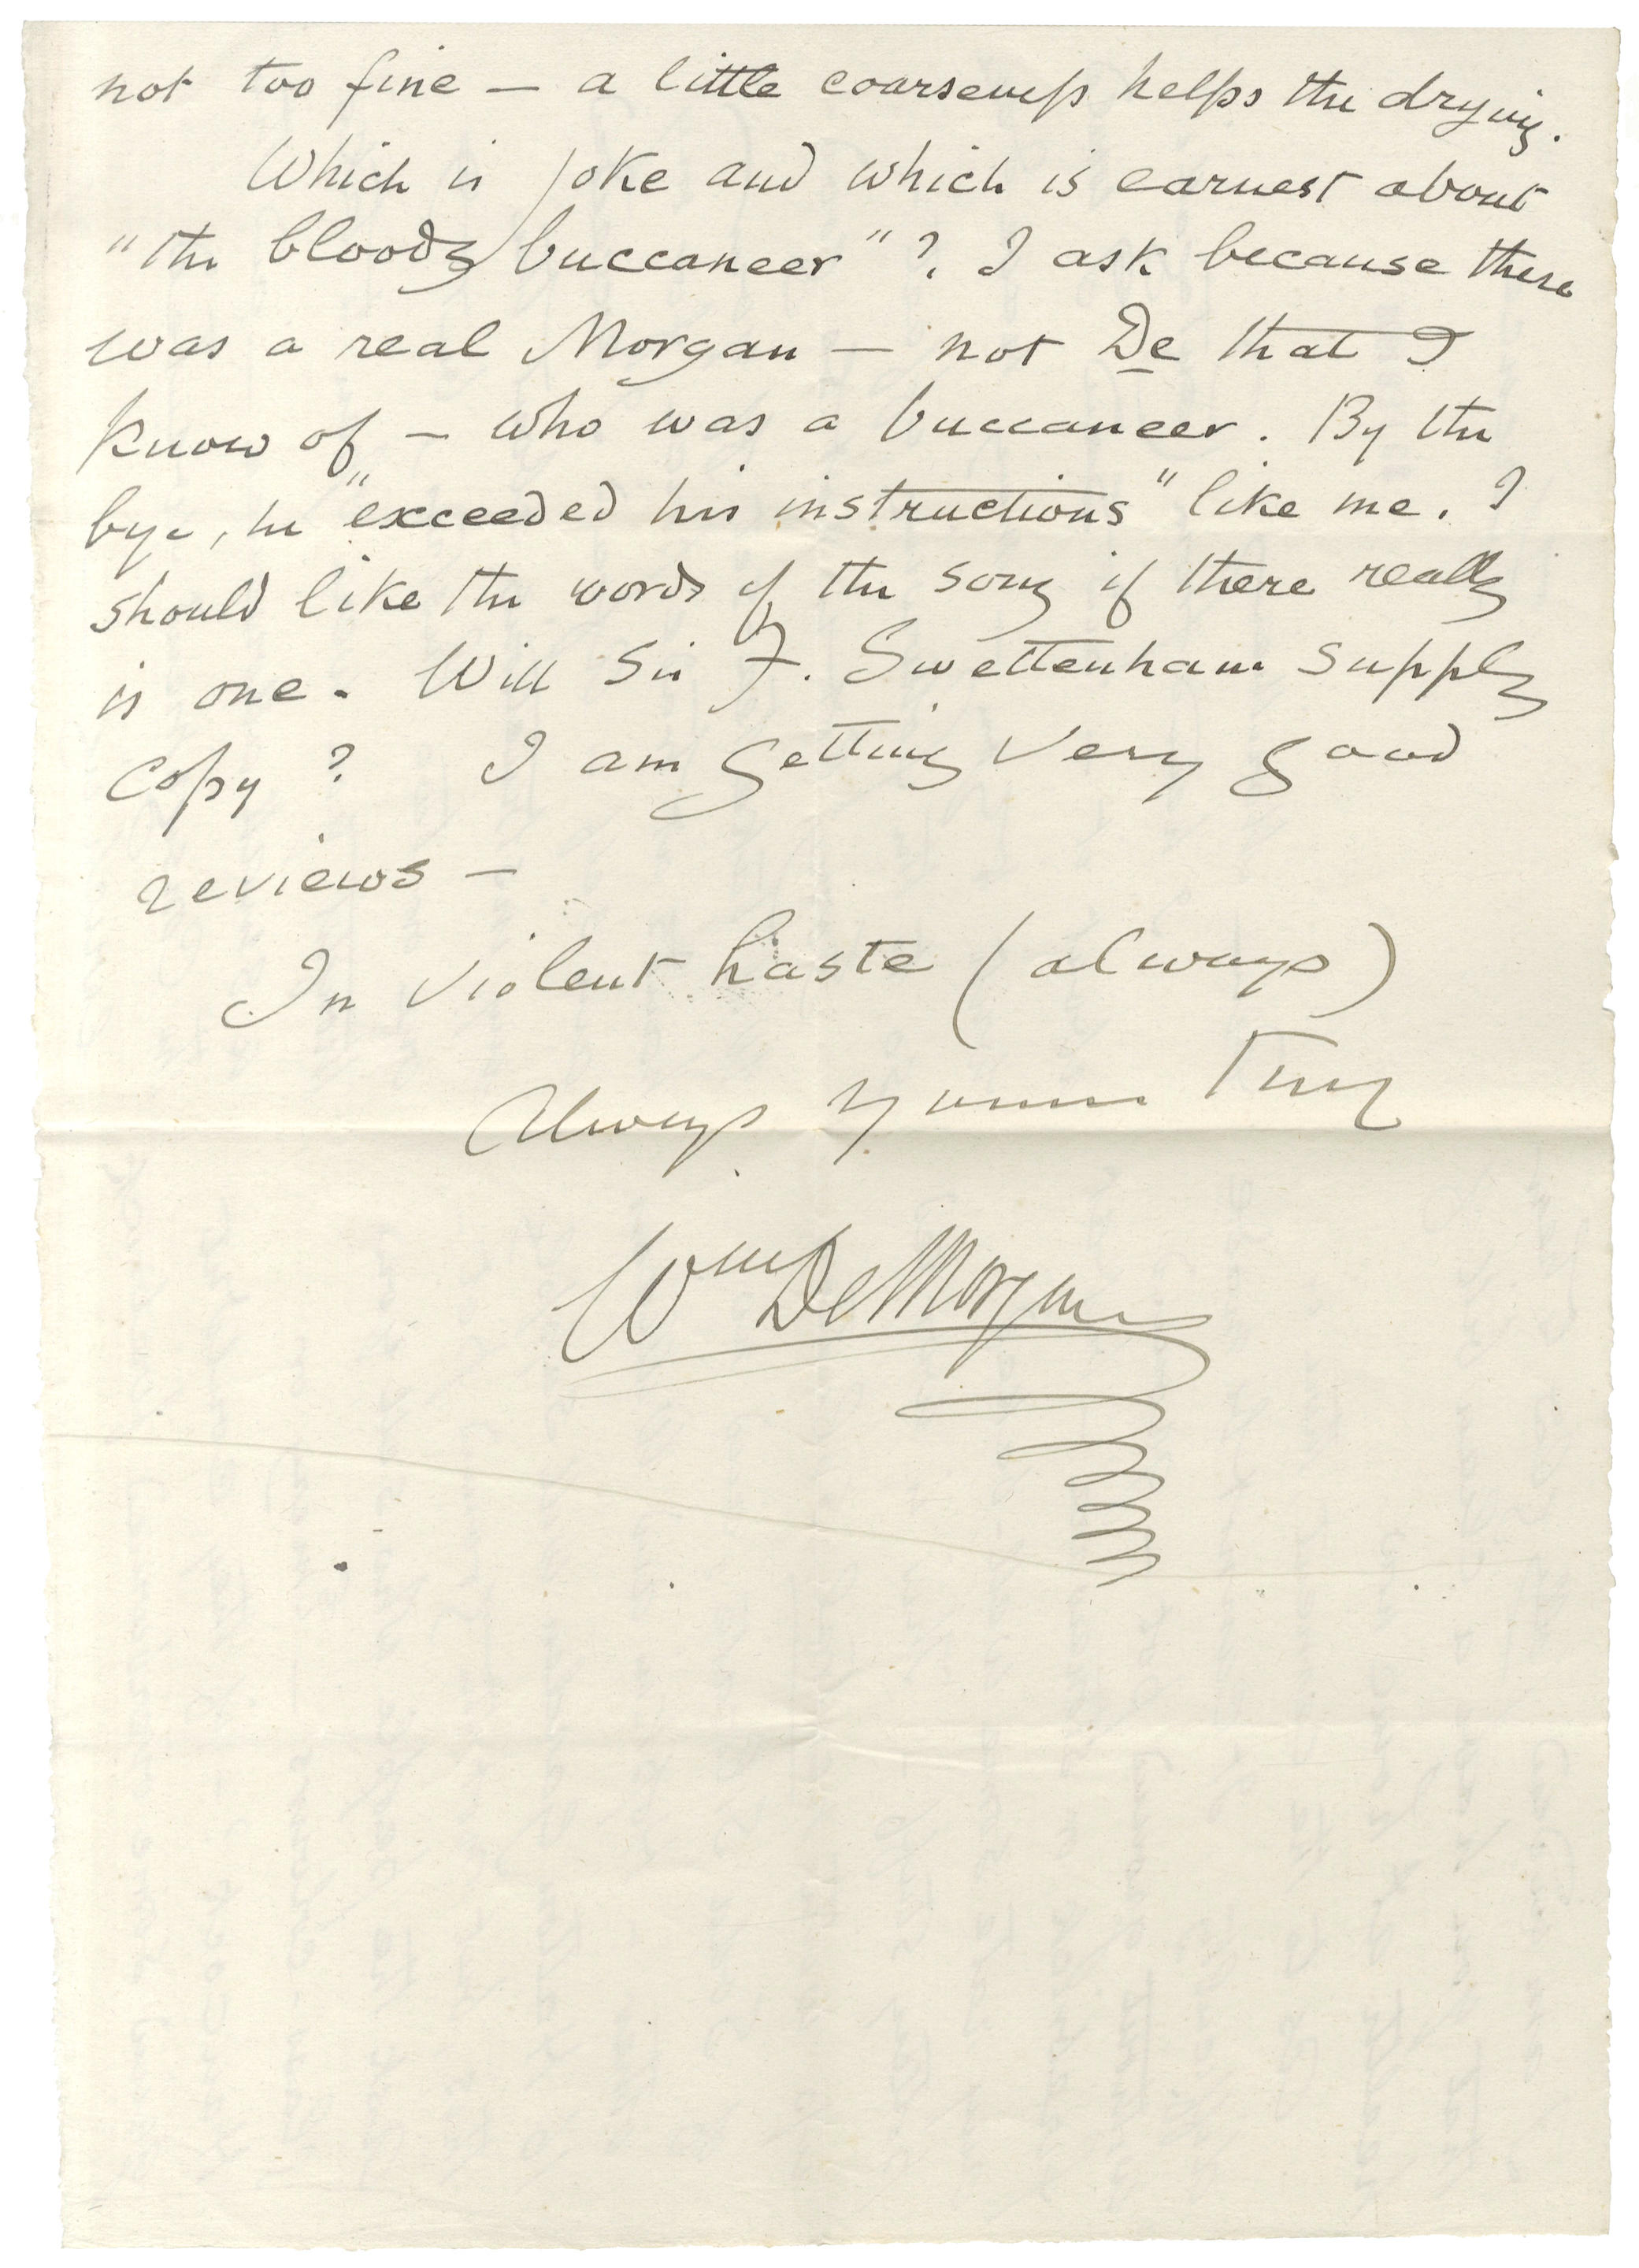 not too fine — a little coarseness helps the drying.
Which is joke and which is earnest about
"the bloody buccaneer"? I ask because there
was a real Morgan — not De that I
know of — who was a buccaneer. By the
bye, he "exceeded his instructions" like me. I
should like the words of the song if there really
is one. Will Sir F. Swettenham supply
copy? I am getting very good
reviews —
In violent haste (always)
Always yours truly
Wm De Morgan